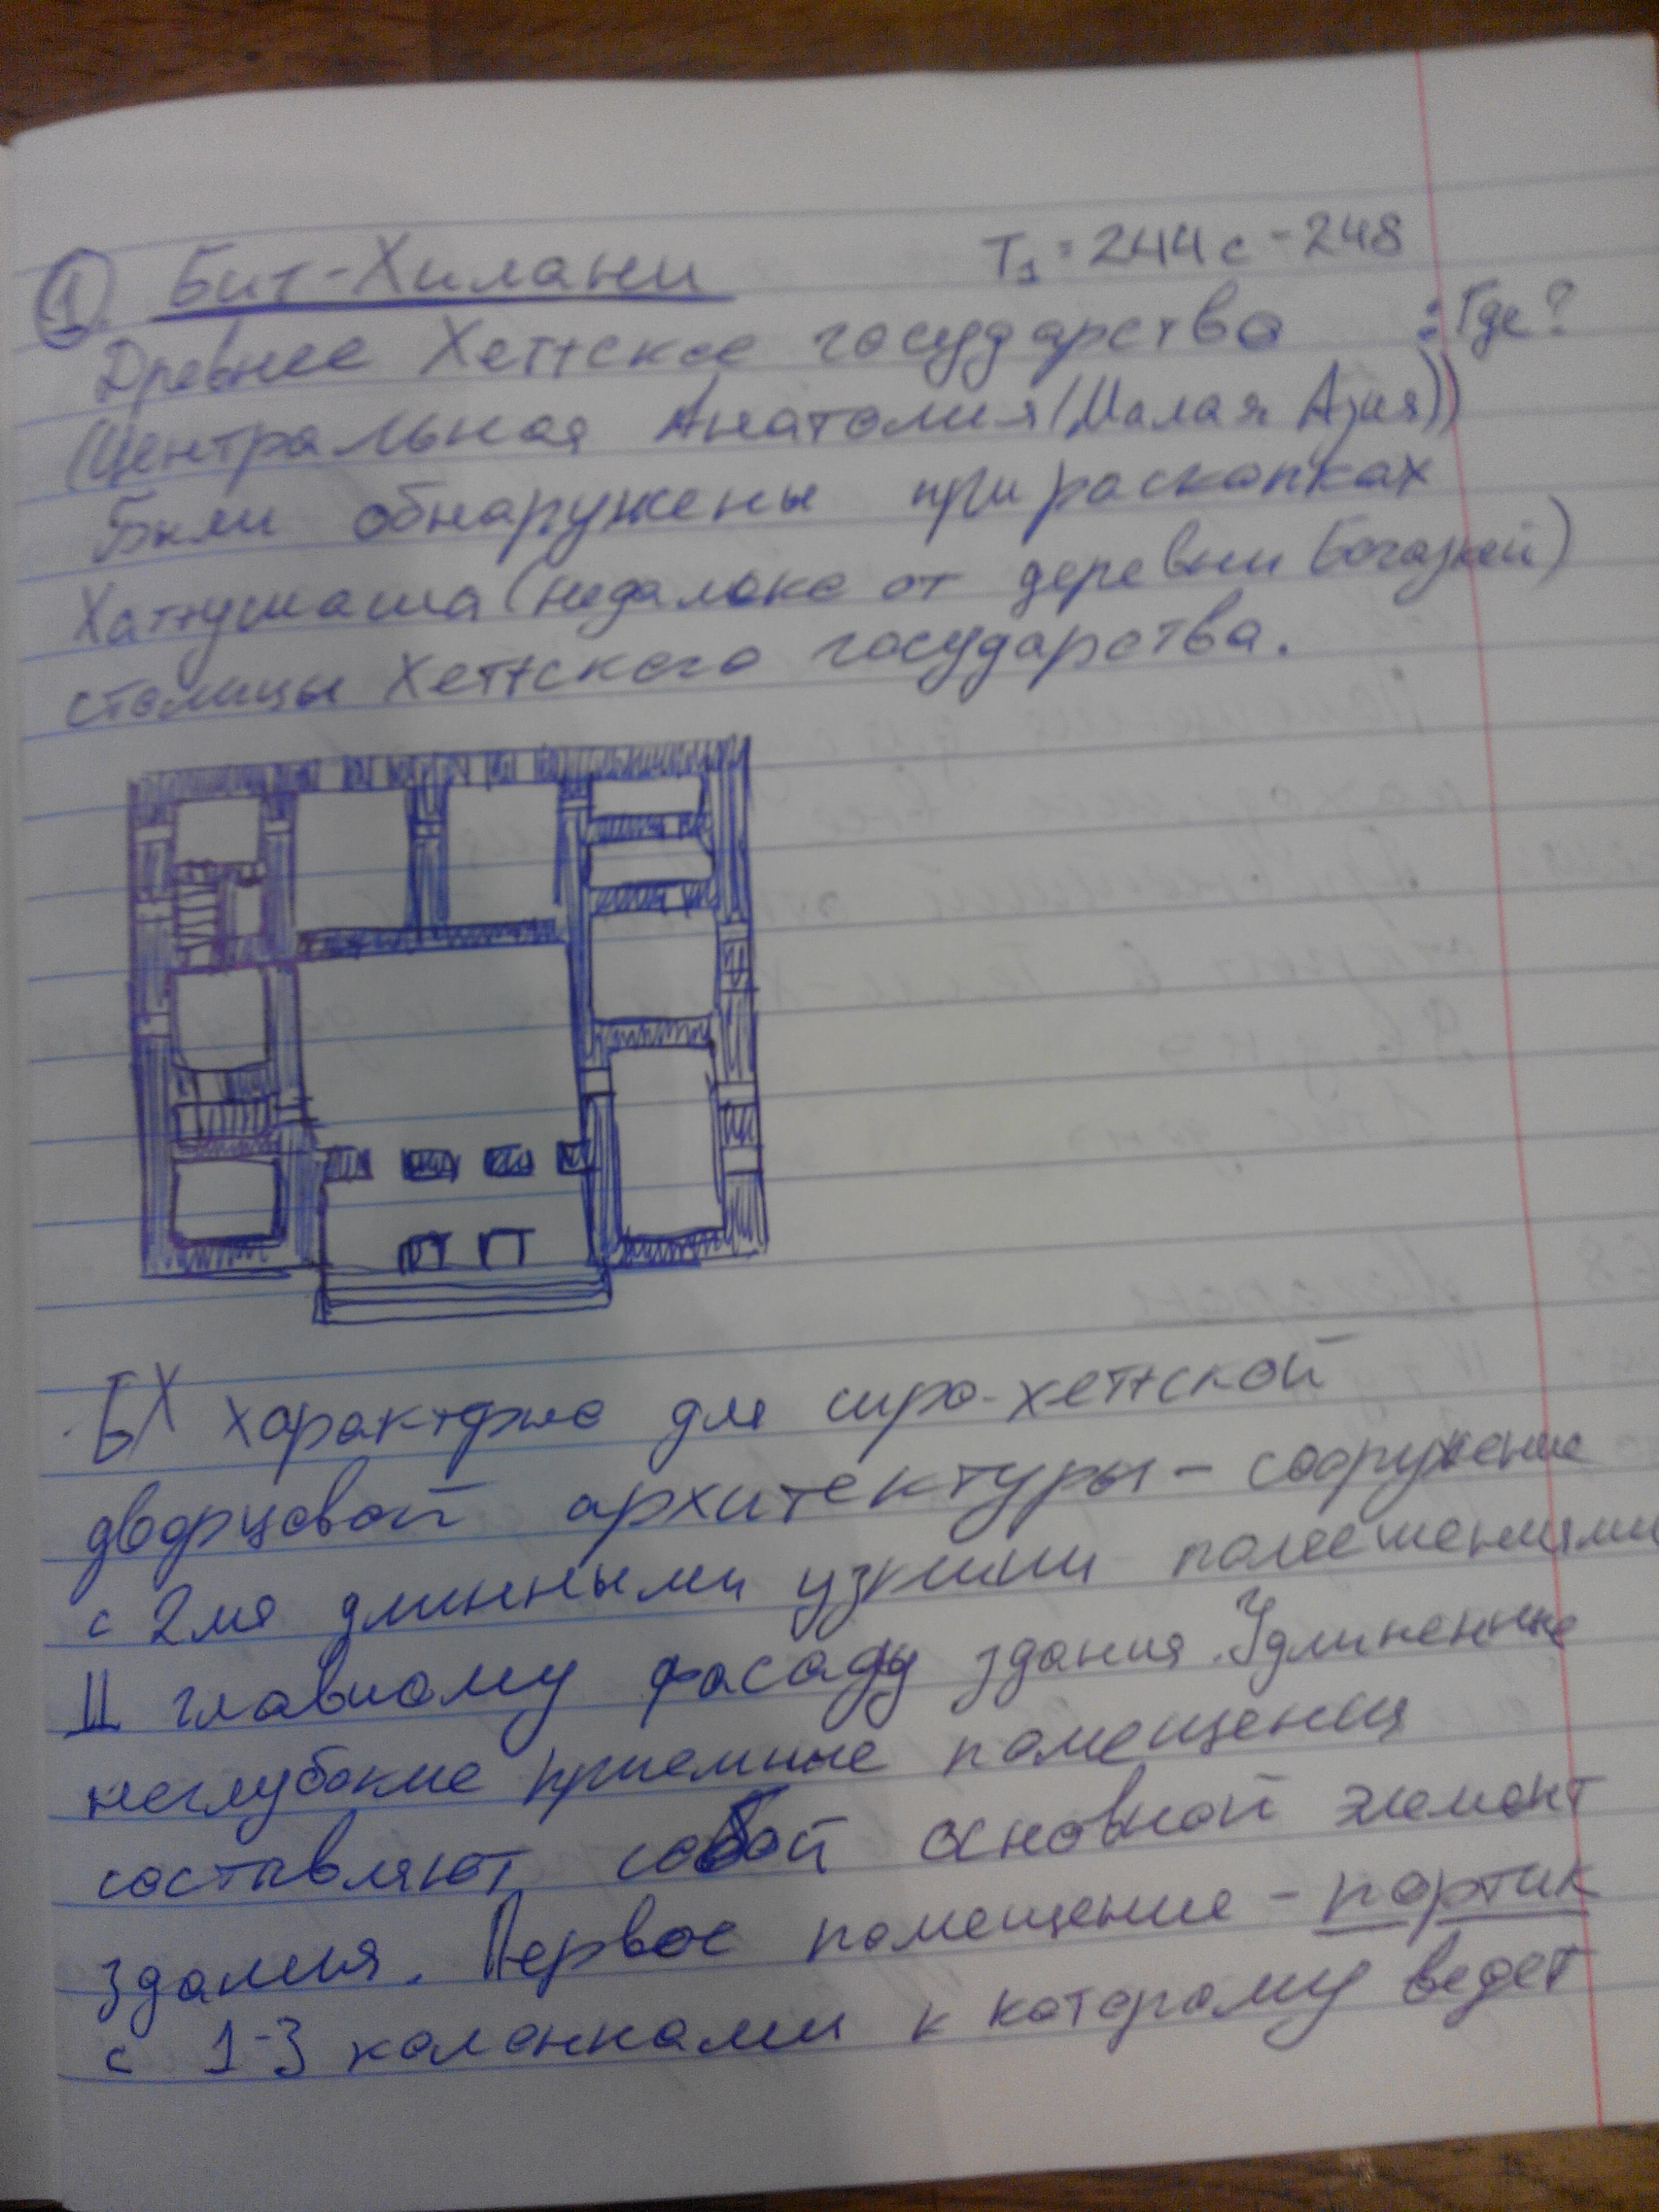 1. Бит-Хилани T1 = 244 с - 248
Древнее Хеттское государство : Где?
(Центральная Анатолия (Малая Азия))
Были обнаружены при раскопках
Хаттушаша (недалеко от деревни Богазкей)
столицы Хеттского государства.
БХ характерно для сиро-хеттской
дворцовой архитектуры - сооружение
с 2мя длинными узкими помещениями
II главному фасаду здания. Удлиненные
неглубокие приемные помещения
составляют собой основной элемент
здания. Первое помещение - портик
с 1-3 колонками к которому ведет